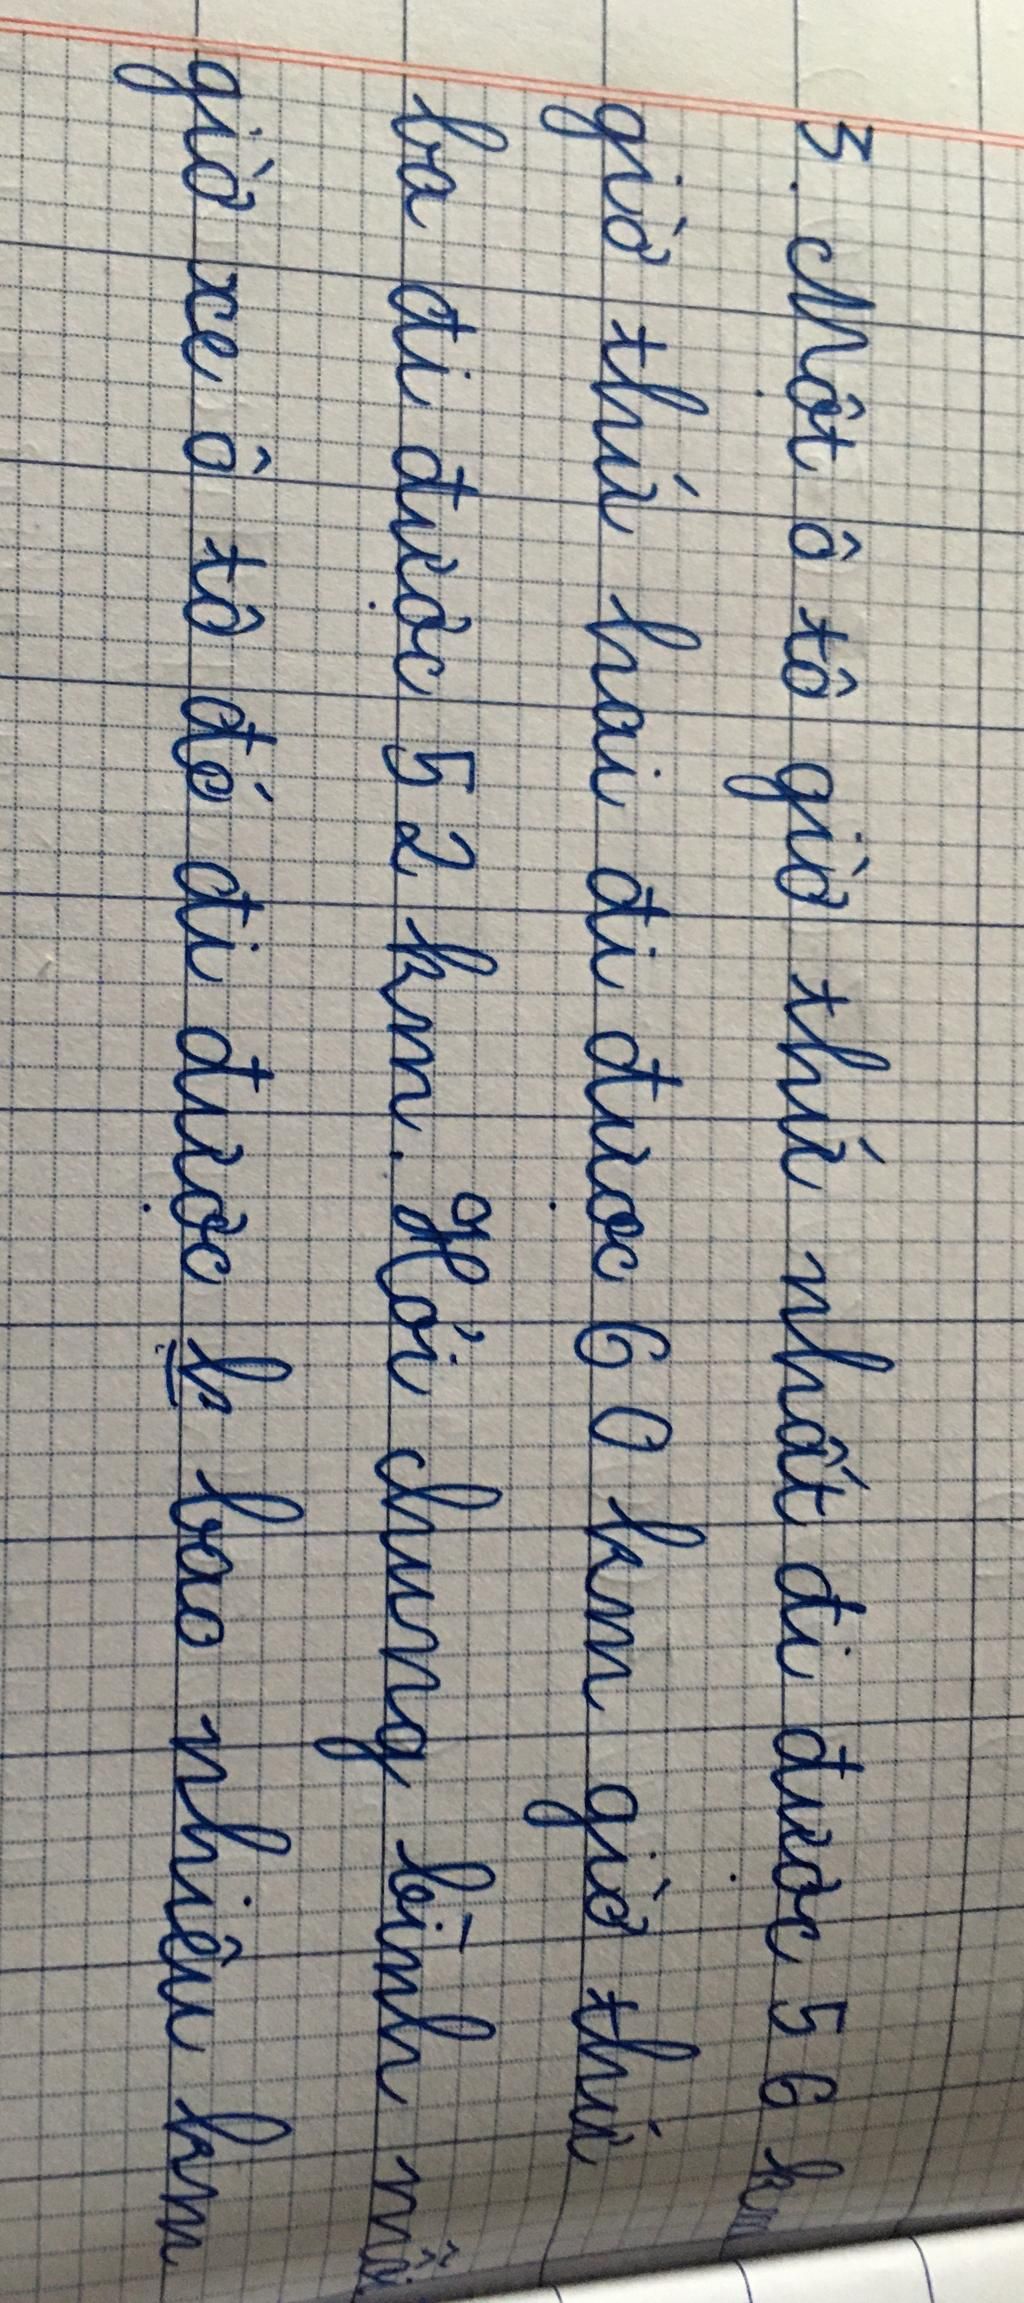 3. Một ô tô giờ thứ nhất đi được 56 km
giờ thứ hai đi được 60 km giờ thứ
ba đi được 52 km. Hỏi chung bình mỗi
giờ xe ô tô đó đi được bao nhiêu km